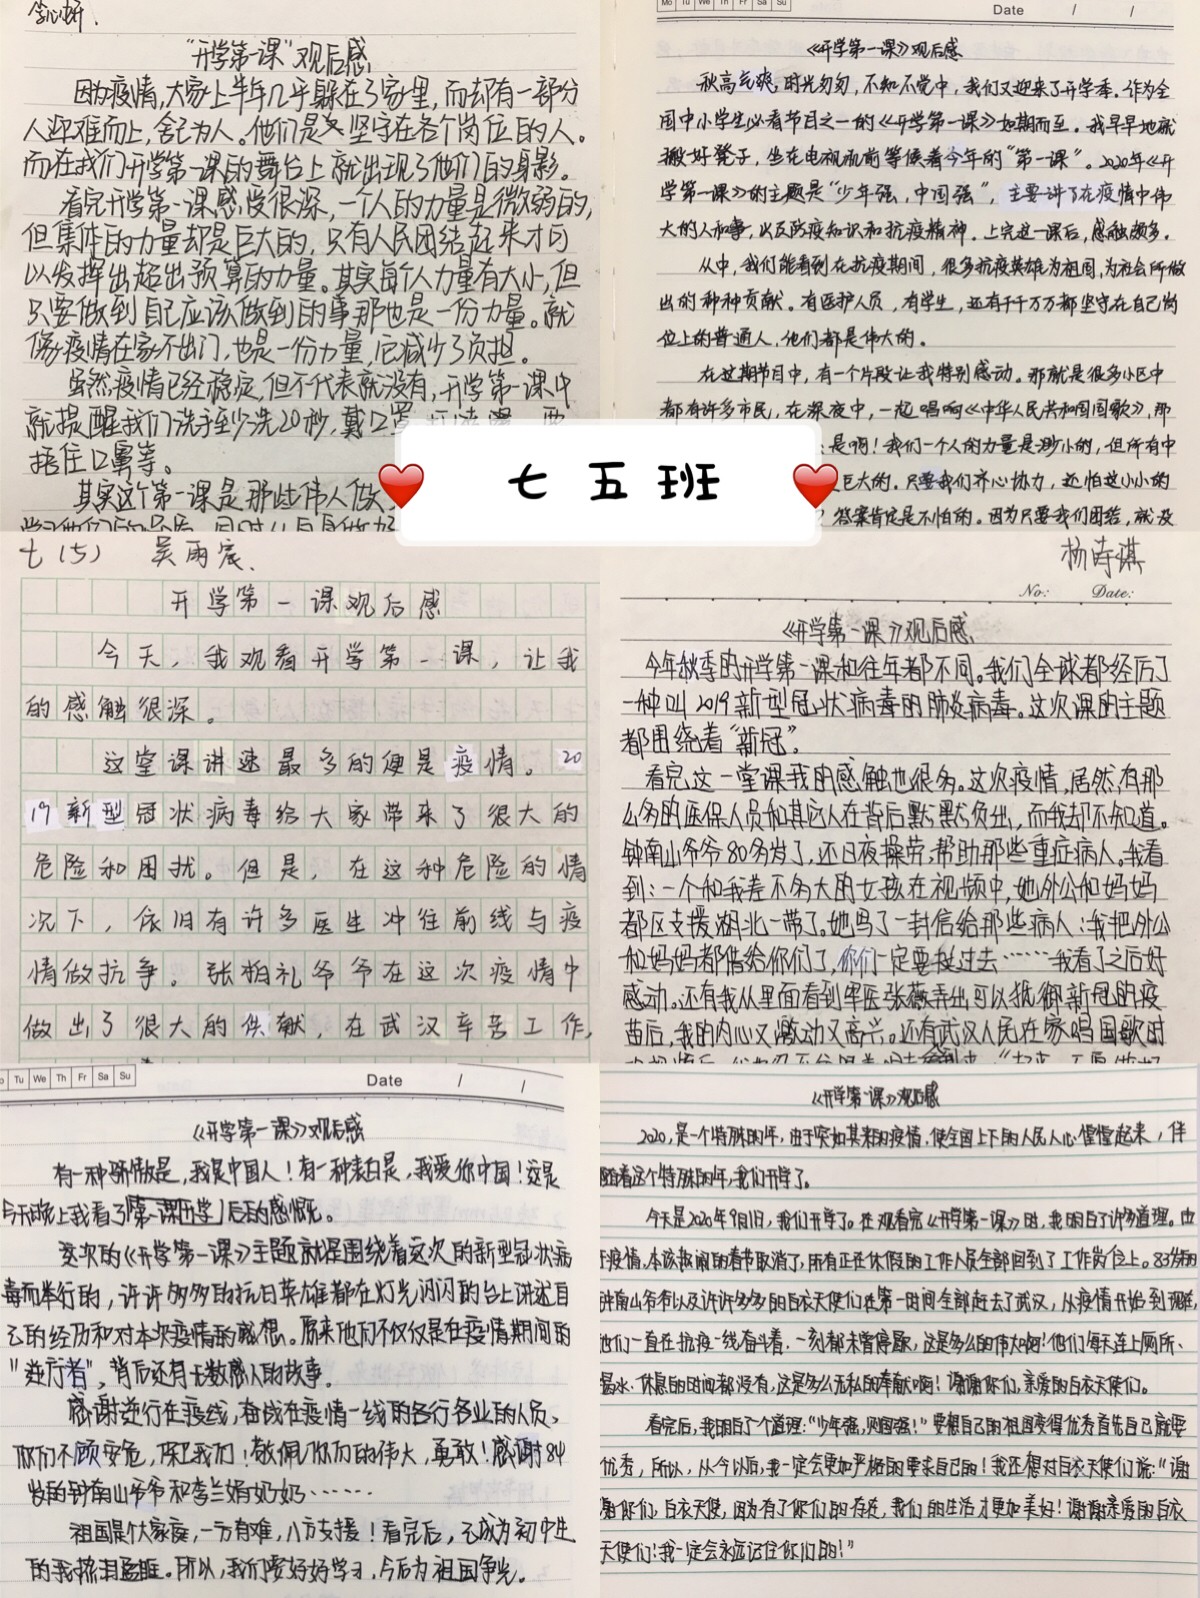 "开学第一课"观后感
因为疫情,大家上半年几乎躲在了家里,而却有一部分
人迎难而上,舍己为人。他们是坚守在各个岗位的人。
而在我们开学第一课的舞台上就出现了他们的身影。
看完开学第一课感受很深,一个人的力量是微弱的,
但集体的力量却是巨大的,只有人民团结起来才可
以发挥出超出预算的力量。其实每个人力量有大小,但
只要做到自己应该做到的事那也是一份力量。就
像疫情在家不出门,也是一份力量,它减少了负担。
虽然疫情已经稳定,但不代表就没有,开学第一课中
就提醒我们洗手至少洗20秒,戴口罩
捂住口鼻等。
其实这个第一课是那些伟人做
Mo Tu We Th Fr Sa Su
Date / /
《开学第一课》观后感
秋高气爽,时光匆匆,不知不觉中,我们又迎来了开学季。作为全
国中小学生必看节目之一的《开学第一课》如期而至。我早早地就
搬好凳子,坐在电视机前等候着今年的"第一课"。2020年《开
学第一课》的主题是"少年强,中国强",主要讲了在疫情中伟
大的人和事,以及防疫知识和抗疫精神。上完这一课后,感触颇多。
从中,我们能看到在抗疫期间,很多抗疫英雄为祖国,为社会所做
出的种种贡献。有医护人员,有学生,还有千千万万都坚守在自己岗
位上的普通人,他们都是伟大的。
在这期节目中,有一个片段让我特别感动。那就是很多小区中
都有许多市民,在深夜中,一起唱响《中华人民共和国国歌》,那
是啊!我们一个人的力量是渺小的,但所有中
巨大的。只要我们齐心协力,还怕这小小的
?答案肯定是不怕的。因为只要我们团结,就没
七 五 班
七(5) 吴雨宸、
开学第一课观后感
今天,我观看开学第一课,让我
的感触很深。
这堂课讲述最多的便是疫情。20
19新型冠状病毒给大家带来了很大的
危险和困扰。但是,在这种危险的情
况下,依旧有许多医生冲往前线与疫
情做抗争。张柏礼爷爷在这次疫情中
做出了很大的供献,在武汉辛苦工作,
杨诗祺
No: Date:
《开学第一课》观后感
今年秋季的开学第一课和往年都不同。我们全球都经历了
一种叫2019新型冠状病毒的肺炎病毒。这次课的主题
都围绕着"新冠"。
看完这一堂课我的感触也很多。这次疫情,居然有那
么多的医保人员和其它人在背后默默负出,而我却不知道。
钟南山爷爷80多岁了,还日夜操劳,帮助那些重症病人。我看
到:一个和我差不多大的女孩在视频中,她外公和妈妈
都区支援湖北一带了。她写了一封信给那些病人:我把外公
和妈妈都借给你们了,你们一定要挺过去……我看了之后好
感动。还有我从里面看到军医张薇弄出可以抵御新冠的疫
苗后,我的内心又激动又高兴。还有武汉人民在家唱国歌时
Tu We Th Fr Sa Su
Date / /
《开学第一课》观后感
有一种骄傲是,我是中国人!有一种表白是,我爱你中国!这是
今天晚上我看了《第一课开学》后的感慨。
这次的《开学第一课》主题就是围绕着这次的新型冠状病
毒而举行的,许许多多的抗日英雄都在灯光闪闪的台上讲述自
己的经历和对本次疫情的感想。原来他们不仅仅是在疫情期间的
"逆行者",背后还有无数感人的故事。
感谢逆行在疫线,奋战在疫情一线的各行各业的人员、
你们不顾安危,保卫我们!敬佩你们的伟大,勇敢!感谢84
岁的钟南山爷爷和李兰娟奶奶……
祖国是个大家庭,一方有难,八方支援!看完后,已成为初中生
的我热泪盈眶。所以,我们要好好学习,今后为祖国争光。
《开学第一课》观后感
2020,是一个特殊的年,由于突如其来的疫情,使全国上下的人民人心惶惶起来,伴
随着这个特殊的年,我们开学了。
今天是2020年9月1日,我们开学了。在观看完《开学第一课》时,我明白了许多道理。由
于疫情,本该热闹的春节取消了,所有正在休假的工作人员全部回到了工作岗位上。83岁的
钟南山爷爷以及许许多多的白衣天使们在第一时间全部赶去了武汉,从疫情开始到现在,
他们一直在抗疫一线奋斗着,一刻都未曾停歇,这是多么的伟大啊!他们每天连上厕所、
喝水、休息的时间都没有,这是多么无私的奉献啊!谢谢你们,亲爱的白衣天使们。
看完后,我明白了个道理:"少年强,则国强!"要想自己的祖国变得优秀首先自己就要
优秀,所以,从今以后,我一定会更加严格的要求自己的!我还想对白衣天使们说:"谢
谢你们,白衣天使,因为有了你们的存在,我们的生活才更加美好!谢谢亲爱的白衣
天使们!我一定会永远记住你们的!"